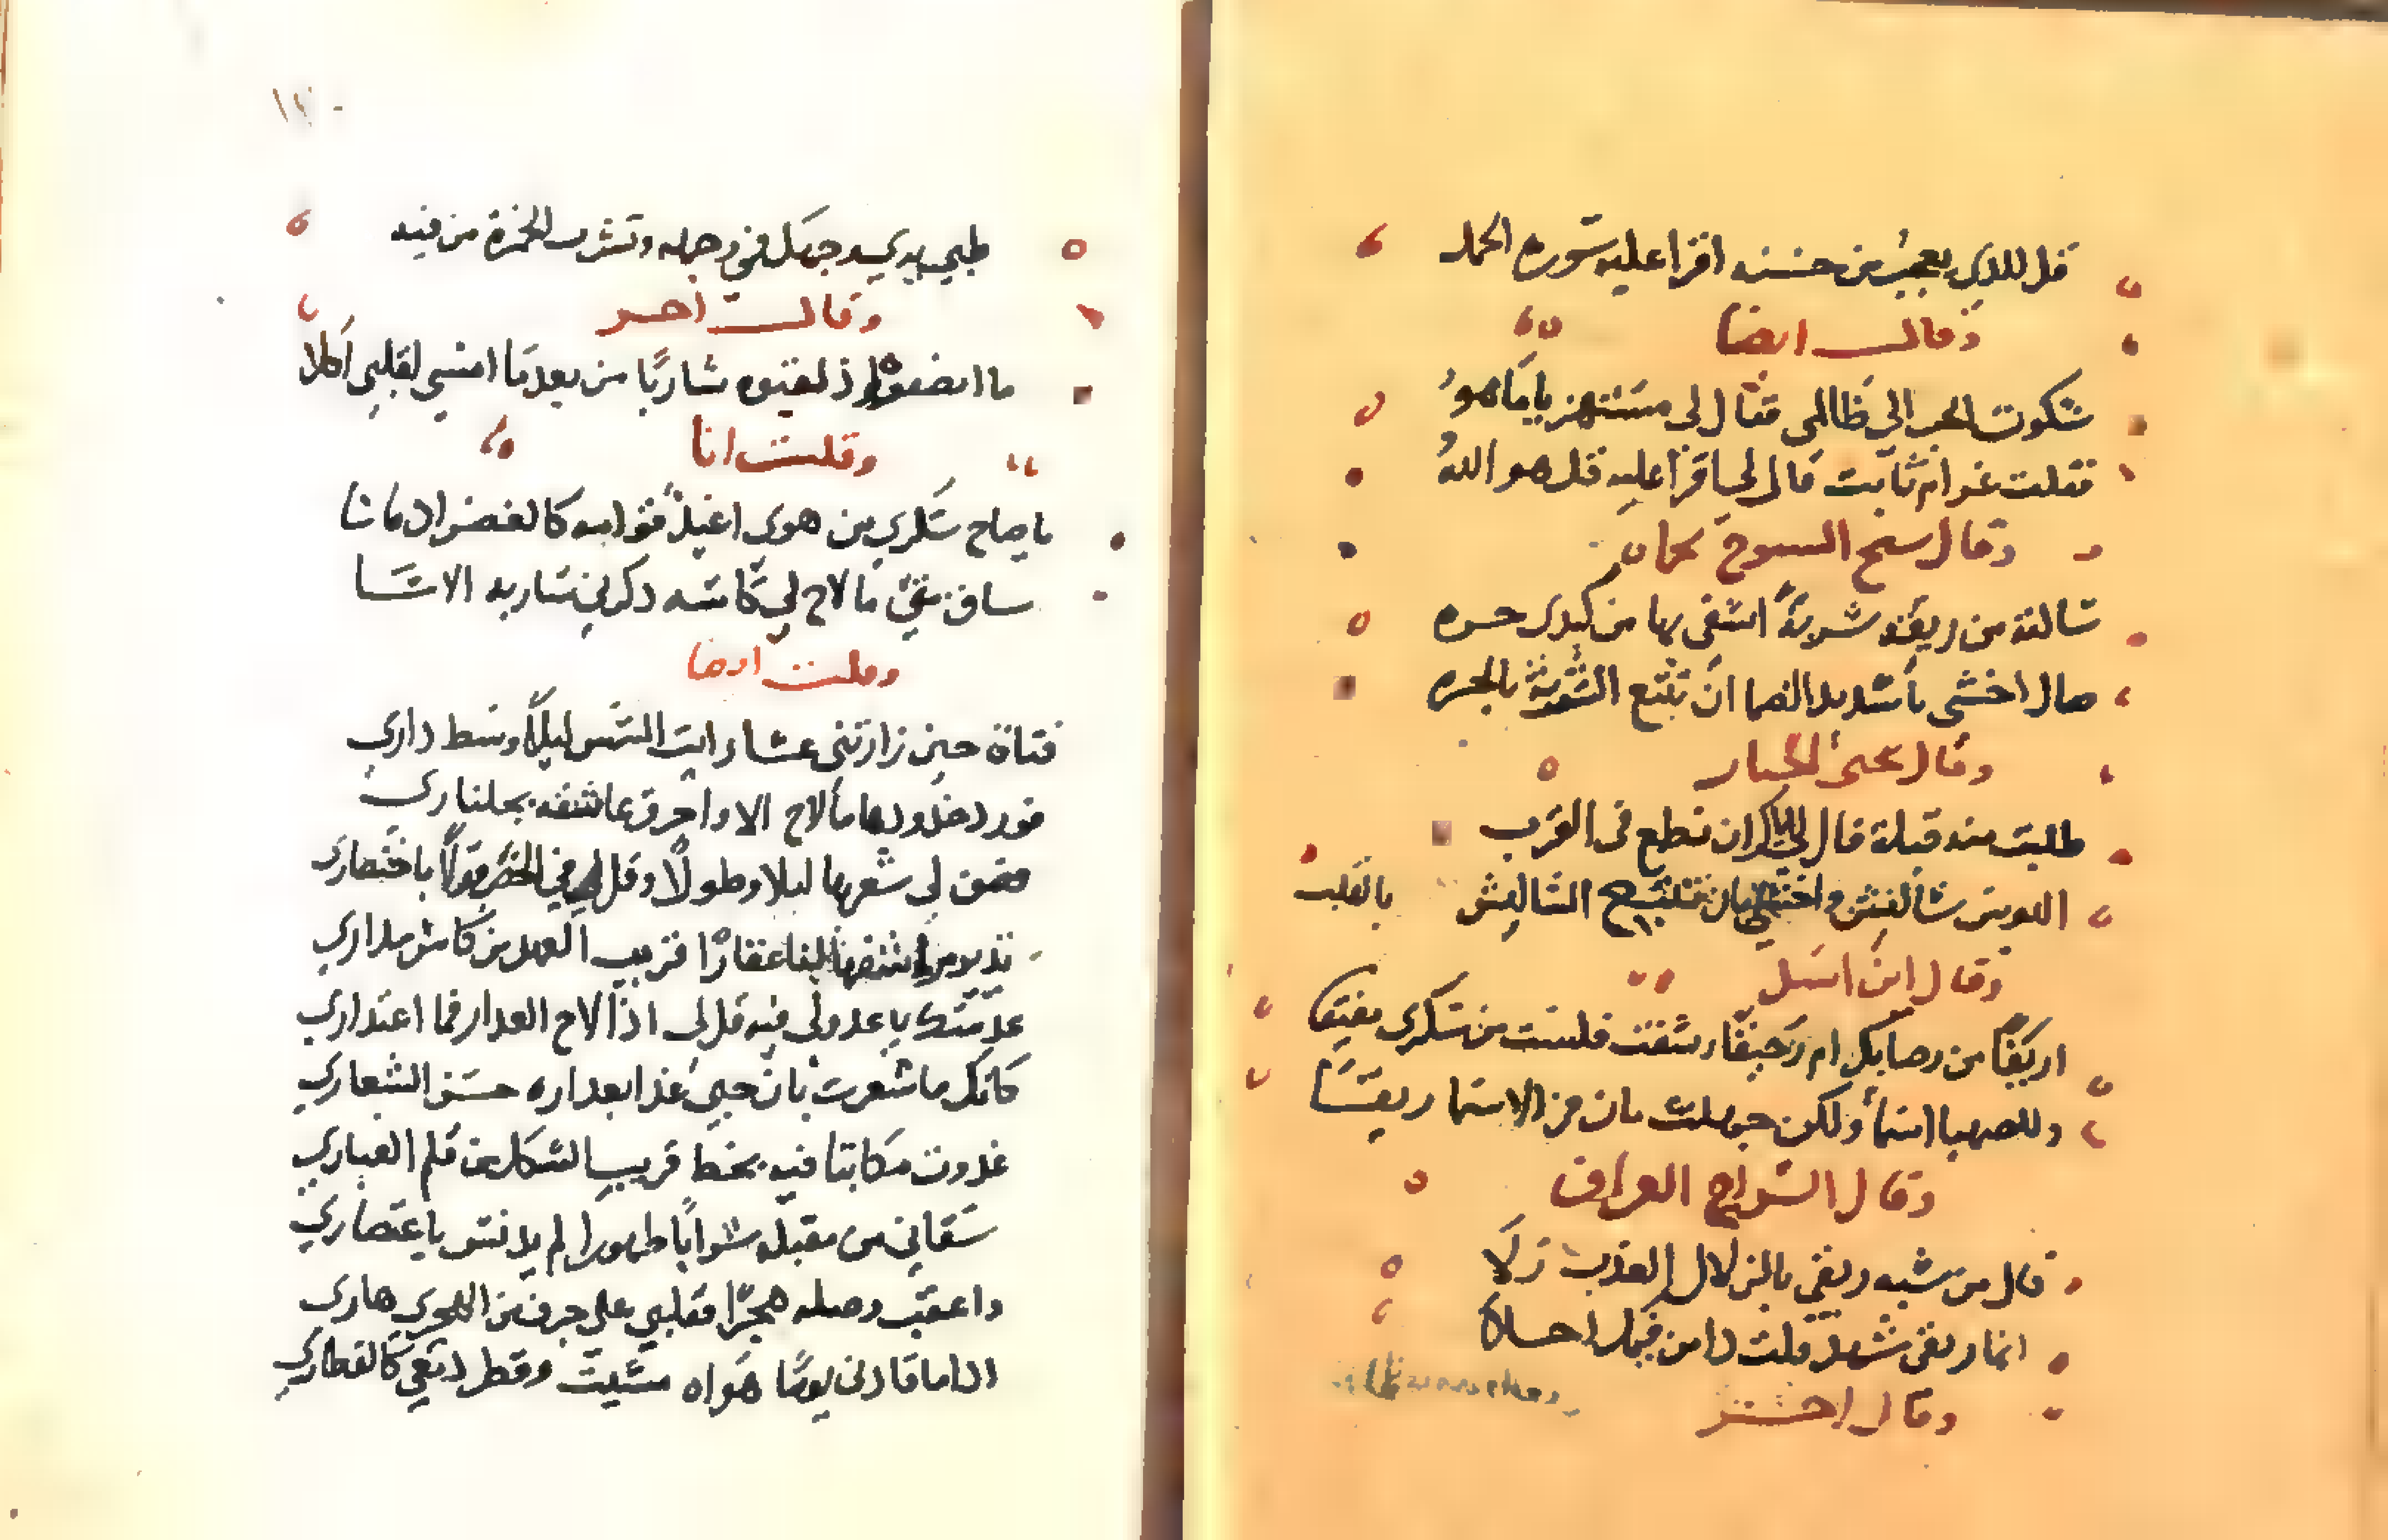 قل للذي يعجب من حسنه اقرا عليه سورة الحمد
وقال ايضا
شكوت الحب الى ظالمي فقال لى مستهزيا ما هو
فقلت غرام ثابت قال لي اقرا عليه قل هو الله
وقال شيخ الشيوخ بحماه
سالته من ريقه شربة اشفى بها من كبدى حره
فقال اخشى يا شديد الضما ان تتبع الشربة بالجره
وقال يحيى الخباز
طلبت منه قبلة قال لي اياك ان تطمع فى القرب
البوس شاليش واخشى بان يتبع الشاليش بالقلب
وقال ابن
اريقا من رضابك ام رحيقا رشفت فلست من سكرى مفيقا
وللصهبا اسما ولكن جهلت بان من الاسما ريقا
وقال السراج الوراق
قال من شبه ريقي بالزلال العذب زلا
انما ريقى شهد قلت دا من قبل احلا
وقال اخر
١٢٠
وجهك في وجهه وتشرب الخمرة من فيه
وقال اخر
ما انصفوا اذ لقبوه شاربا من بعد ما امسى لقلبي اكلا
وقلت انا
يا صاح سكري من هوى اغيد قوامه كالغصن ان ماسا
ساق متى ما لاح لي كاسه دكرني شاربه الاسا
وقلت ايضا
فتاة حين زارتنى عشا رايت الشمس ليلا وسط داري
فورد خدودها ما لاح الا واحرق عاشقه بجلناري
لى شعرها ليلا وطولا وقل لي في الخصر قولا باختصارى
عقارا قريب العهد من كاس مدارى
عدمتك يا عدولى فيه قل لى اذا لاح العدار فما اعتداري
كانك ما شعرت بان حبي غدا بعداره حسن الشعاري
غدوت مكابتا فيه بخط قريب الشكل من قلم الغباري
سقاني من مقبله شرابا طهورا لم يدنس باعتصاري
واعقب وصله هجرا فقلبي على جرف من الهجرى هارى
اذا ما قادنى يوما هواه مشيت وقطر دمعي كالقطاري